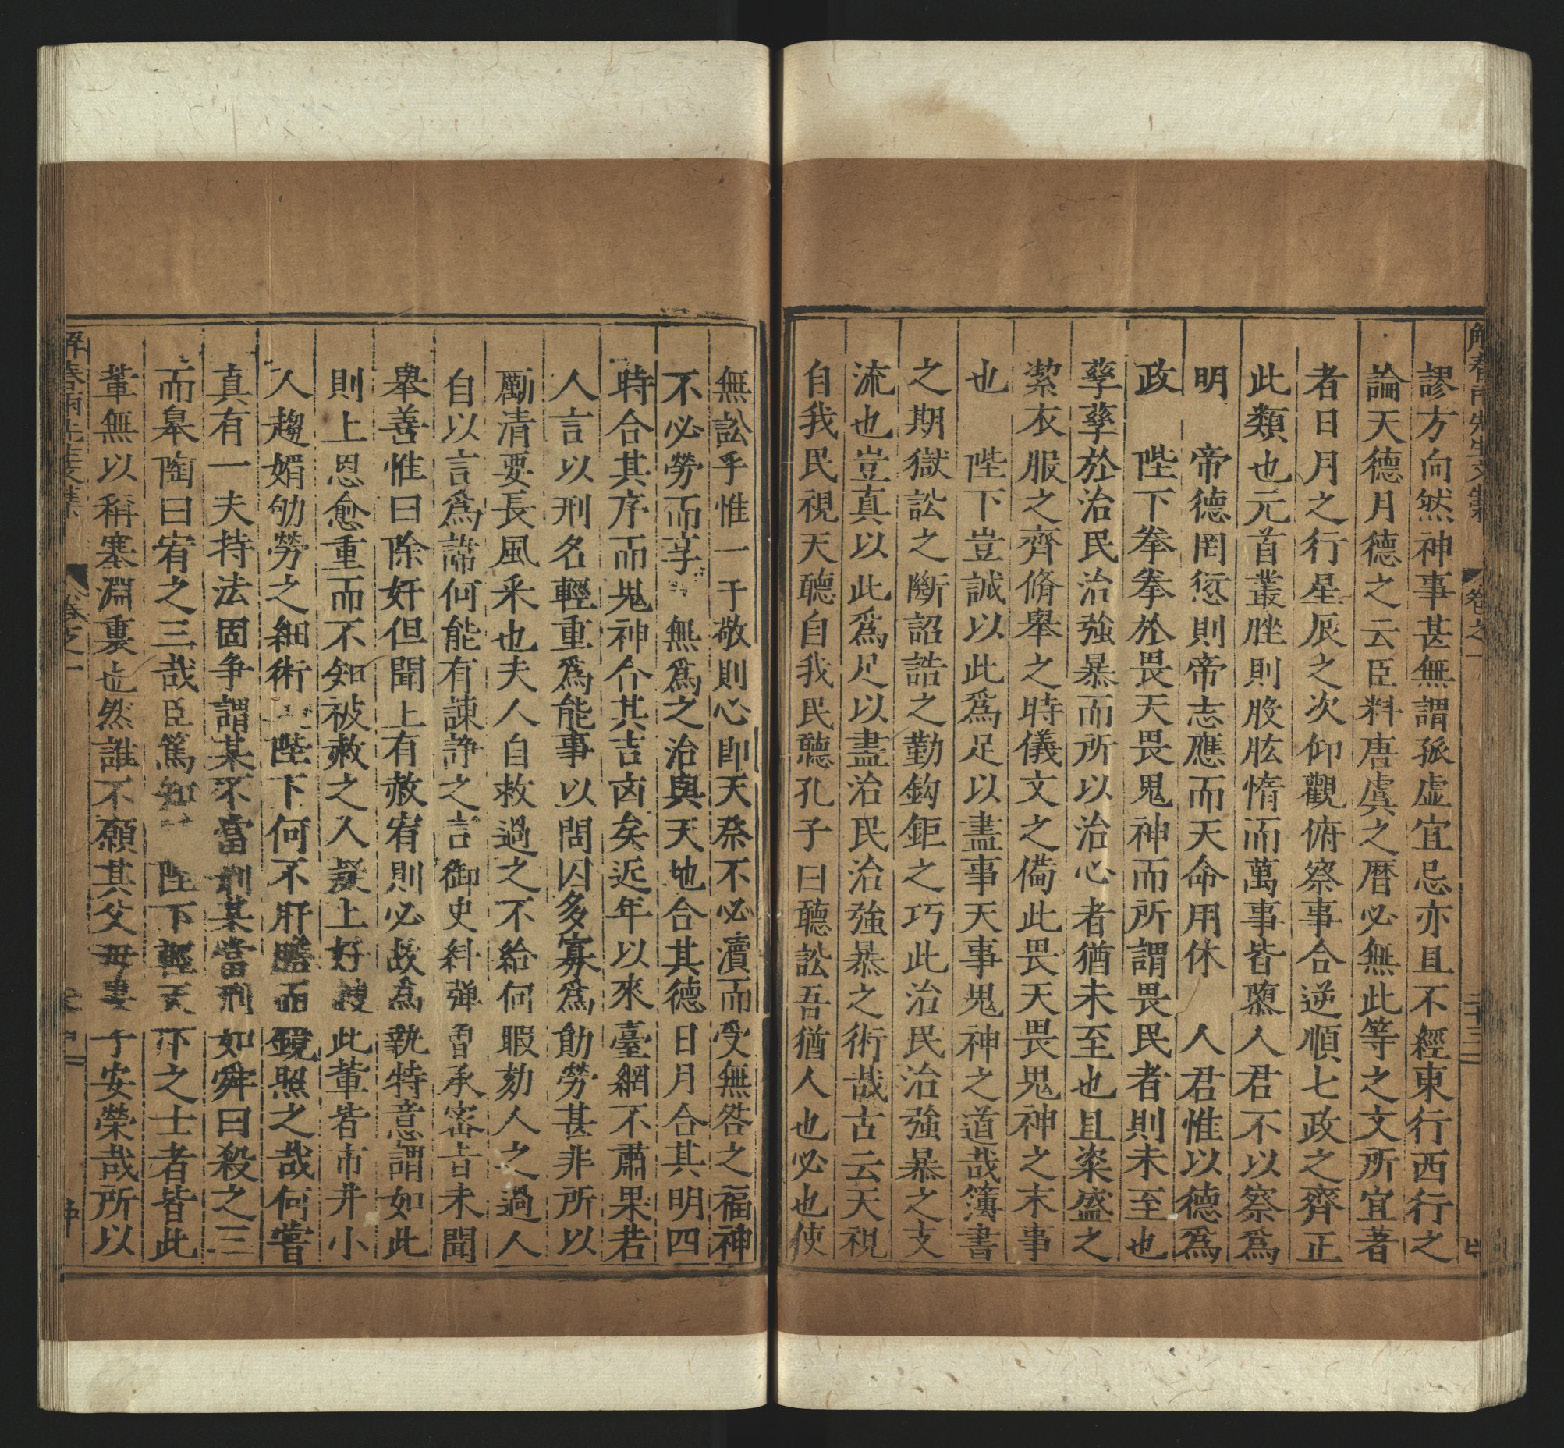 解春雨先生文集 卷之一 二十三
謬方向然神事甚無謂孤虚宜忌亦且不經東行西行之
論天德月德之云臣料唐虞之曆必無此等之文所宜著
者日月之行星辰之次仰觀俯察事合逆順七政之齊正
此類也元首叢脞則股肱惰而萬事皆隳人君不以察爲
明 帝德罔愆則帝志應而天命用休 人君惟以德爲
政 陛下拳拳於畏天畏鬼神而所謂畏民者則未至也
孳孳於治民治強暴而所以治心者猶未至也且粢盛之
絜衣服之齊脩舉之時儀文之備此畏天畏鬼神之末事
也 陛下豈誠以此爲足以盡事天事鬼神之道哉簿書
之期獄訟之斷詔誥之勤鈎鉅之巧此治民治強暴之支
流也豈真以此爲足以盡治民治強暴之術哉古云天視
自我民視天聽自我民聽孔子曰聽訟吾猶人也必也使
無訟乎惟一于敬則心即天祭不必瀆而受無咎之福神
不必勞而享 無爲之治與天地合其德日月合其明四
時合其序而鬼神合其吉凶矣近年以來臺網不肅果若
人言以刑名輕重爲能事以問囚多寡爲勛勞甚非所以
勵清要長風采也夫人自救過之不給何暇劾人之過人
自以言爲諱何能有諫諍之言御史糾彈習承密旨未聞
舉善惟曰除奸但聞上有赦宥則必故爲執特意謂如此
則上恩愈重而不知被赦之人疑上好 此輩皆市井小
人趨媚劬勞之細術 陛下何不肝膽而鏡照之哉何嘗
真有一夫持法固争謂某不當刑某當刑如舜曰殺之三
而皋陶曰宥之三哉臣篤知 陛下輕天下之士者皆此
輩無以稱塞淵裏也然誰不願其父母妻子安榮哉所以
解春雨先生文集 卷之一